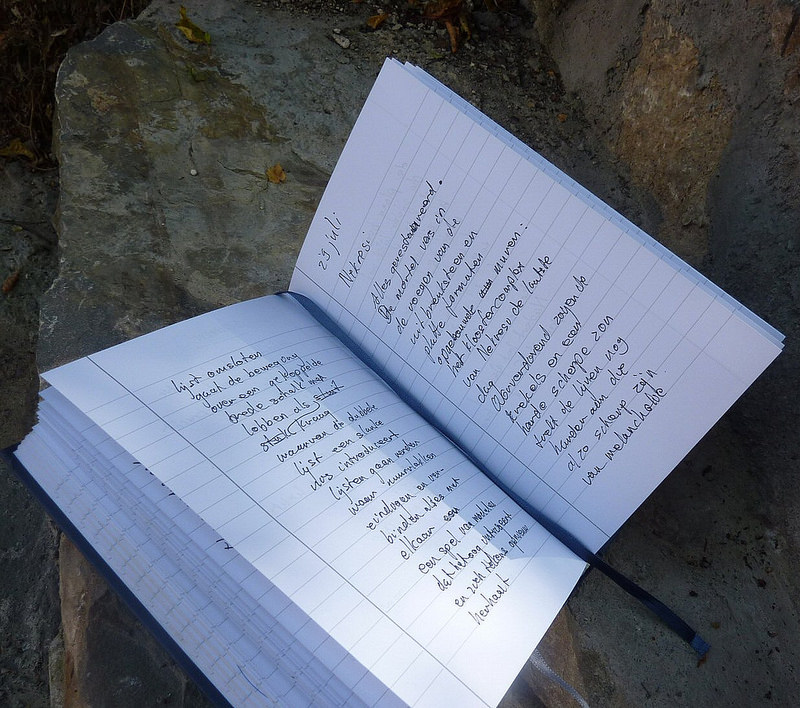 lijst omsloten
gaat de beweging
over een gekoppelde
brede schalk met
lobben als
kraag
waarvan de dubbele
lijst een slanke
nis introduceert
lijsten gaan verder
waar muurvlakken
eindigen en ver-
binden alles met
elkaar een
een spel van
dat betoog
en zich telkens opnieuw
herhaalt
29 juli
Nekresi
Alles geresta
De mortel vers in
de voegen van de
uit breuksteen en
platte formaten
opgebouwde muren:
het kloostercomplex
van Nekresi de laatste
dag
Oorverdovend zagende
krekels en een
hoge scherpe zon
trekt de lijnen nog
harder aan die
al zo scherp zijn
van melancholie.